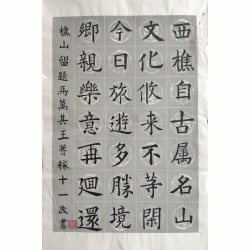 西樵自古属名山
文化攸来不等閑
今日旅遊多勝境
鄉親樂意再迴還
樵山留題馬萬其王普稼十一歲書